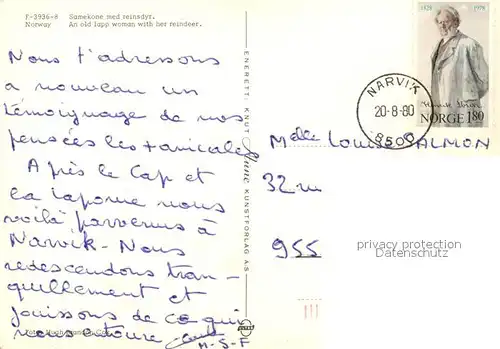 F-3936-8 Samekone med reinsdyr.
Norway An old lapp woman with her reindeer.
Nous t'adressons
a nouveau un
témoignage de nos
pensées les + amicales
Après le Cap et
la Laponie nous
voilà parvenus à
Narvik - Nous
redescendons tran-
quillement et
jouissons de ce qui
nous entoure
M-S-F
ENERETT: KNUT Aune KUNSTFORLAG A·S
1828 1978
Henrik Ibsen
NORGE 180
NARVIK
20-8-80
8500
Melle Louise ALMON
32 ru
955
protection copyright
Datenschutz